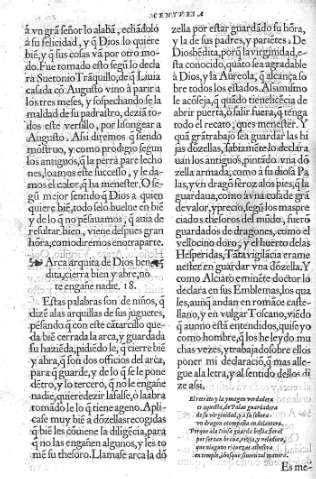 CENTVRIA
à vn grã señor lo alabã, echãdolo
à su felicidad, y q̃ Dios lo quiere
biẽ, y sus cosas vã por otro mo-
do. Fue tomado esto segũ lo decla
rà Suetonio Trãquillo, de q̃ Liuia
casada cõ Augusto vino à parir a
los tres meses, y sospechando se la
maldad de su padrastro, dezia to-
dos este versillo, por lisongear a
Augusto. Assi diremos q̃ siendo
mõstruo, y como prodigio segun
los antiguos, q̃ la perra pare lecho
nes, loamos este successo, y le da-
mos el color, q̃ ha menester. O se-
gũ mejor sentido q̃ Dios a quien
quiere biẽ, todo se lo buelue en biẽ
y de lo q̃ no pẽsauamos, q̃ auia de
resultar, bien, viene despues gran
hõra, como diremos en otra parte.
Arca arquita de Dios ben
dita, cierra bien y abre, no
te engañe nadie. 18.
Estas palabras son de niños, q̃
dizẽ a las arquillas de sus juguetes,
pẽsando q̃ con este cãtarcillo queda
bẽ cerrada la arca, y guardada
su haziẽda, pidiẽdo le, q̃ cierre biẽ
y abra, q̃ son dos officios del arca,
para q̃ guarde, y de lo q̃ se le pone
dẽtro, y lo tercero, q̃ no le engañe
nadie, quiere dezir la falsẽ, o la abra
tomãdo le lo q̃ tiene ageno. Apli-
case muy biẽ a dõzellas recogidas
q̃ biẽ les cõuiene la diligẽcia, para
q̃ no las engañen algunos, y les to
mẽ su thesoro. Llamase arca la dõ
zella por estar guardado su hõra,
y la de sus padres, y pariẽtes. De
Dios bẽdita, porq̃ la virginidad, es-
tà conocido, quãto sea agradable
à Dios, y la Aureola, q̃ alcança so
bre todos los estados. Assi mismo
le acõseja, q̃ quãdo tiene licẽcia de
abrir puerta, o salir fuera, q̃ tenga
todo el recato, que es menester. Y
quã grã trabajo sea guardar las hi
jas dõzellas, sabiamẽte lo declara
uan los antiguos, pintãdo vna dõ
zella armada, como a su diosa Pa
las, y vn dragõ feroz a los pies, q̃ la
guardaua, como a vna cosa de grã
de valor, y precio, segũ los mas pre
ciados thesoros del mũdo, fuerõ
guardados de dragones, como el
vellocino doro, y el huerto de las
Hesperidas, Tãta vigilãcia era me
nester en guardar vna dõzella. Y
como Alciato eminẽte doctor lo
declara en sus Emblemas, los qua
les, aunq̃ andan en romãce caste-
llano, y en vulgar Toscano, viẽdo
q̃ aun no està entendidos, quise yo
como hombre, q̃ los he leydo mu
chas vezes, y trabajado sobre ellos
poner mi declaraciõ, q̃ mas alle-
gue a la letra, y al sentido dellos di
ze assi.
El retrato y la ymagen verdadera
es aquesta, de Palas guardadora
de su virginidad, y a su señora
vn dragon acompaña en delantera.
Es me-